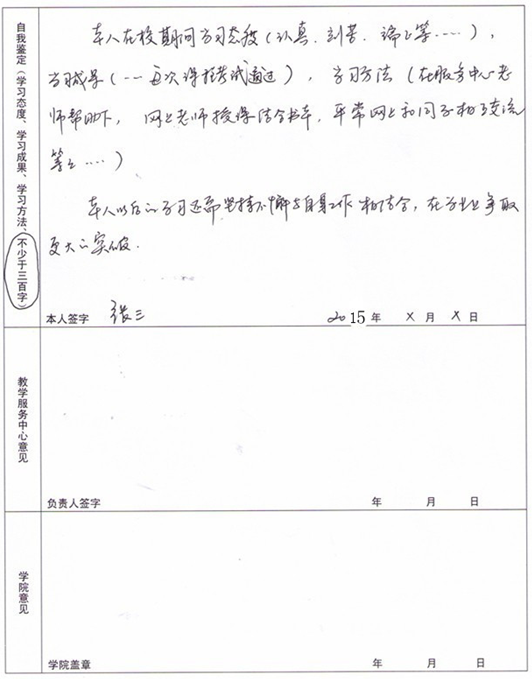 自我鉴定（学习态度、学习成果、学习方法、不少于三百字）
本人在校期间学习态度（认真、刻苦、端正等……），
学习成果（一一每次课程考试通过），学习方法（在服务中心老
师帮助下，网上老师授课结合书本，平常网上和同学相互交流
等等……）
本人以后的学习还需坚持不懈与自身工作相结合，在学业上争取
更大的突破.
本人签字 张三 2015年 X 月 X 日
教学服务中心意见
负责人签字 年 月 日
学院意见
学院盖章 年 月 日